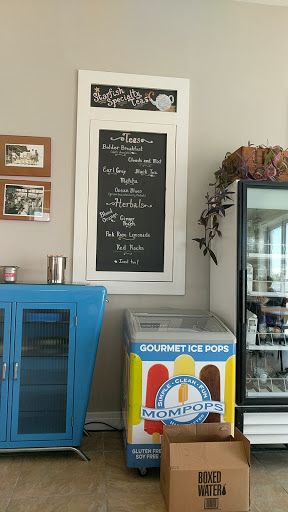 Starfish
Specialty
Teas
Teas
Boulder Breakfast
Clouds and Mist
Earl Grey
Black Tea
Matcha
Ocean Blues
Herbals
Ginger
Peach
Pink Rose Lemonade
Red Rocks
Iced too!
GOURMET ICE POPS
SIMPLE • CLEAN • FUN
MOMPOPS
GLUTEN FREE
SOY FREE
BOXED
WATER